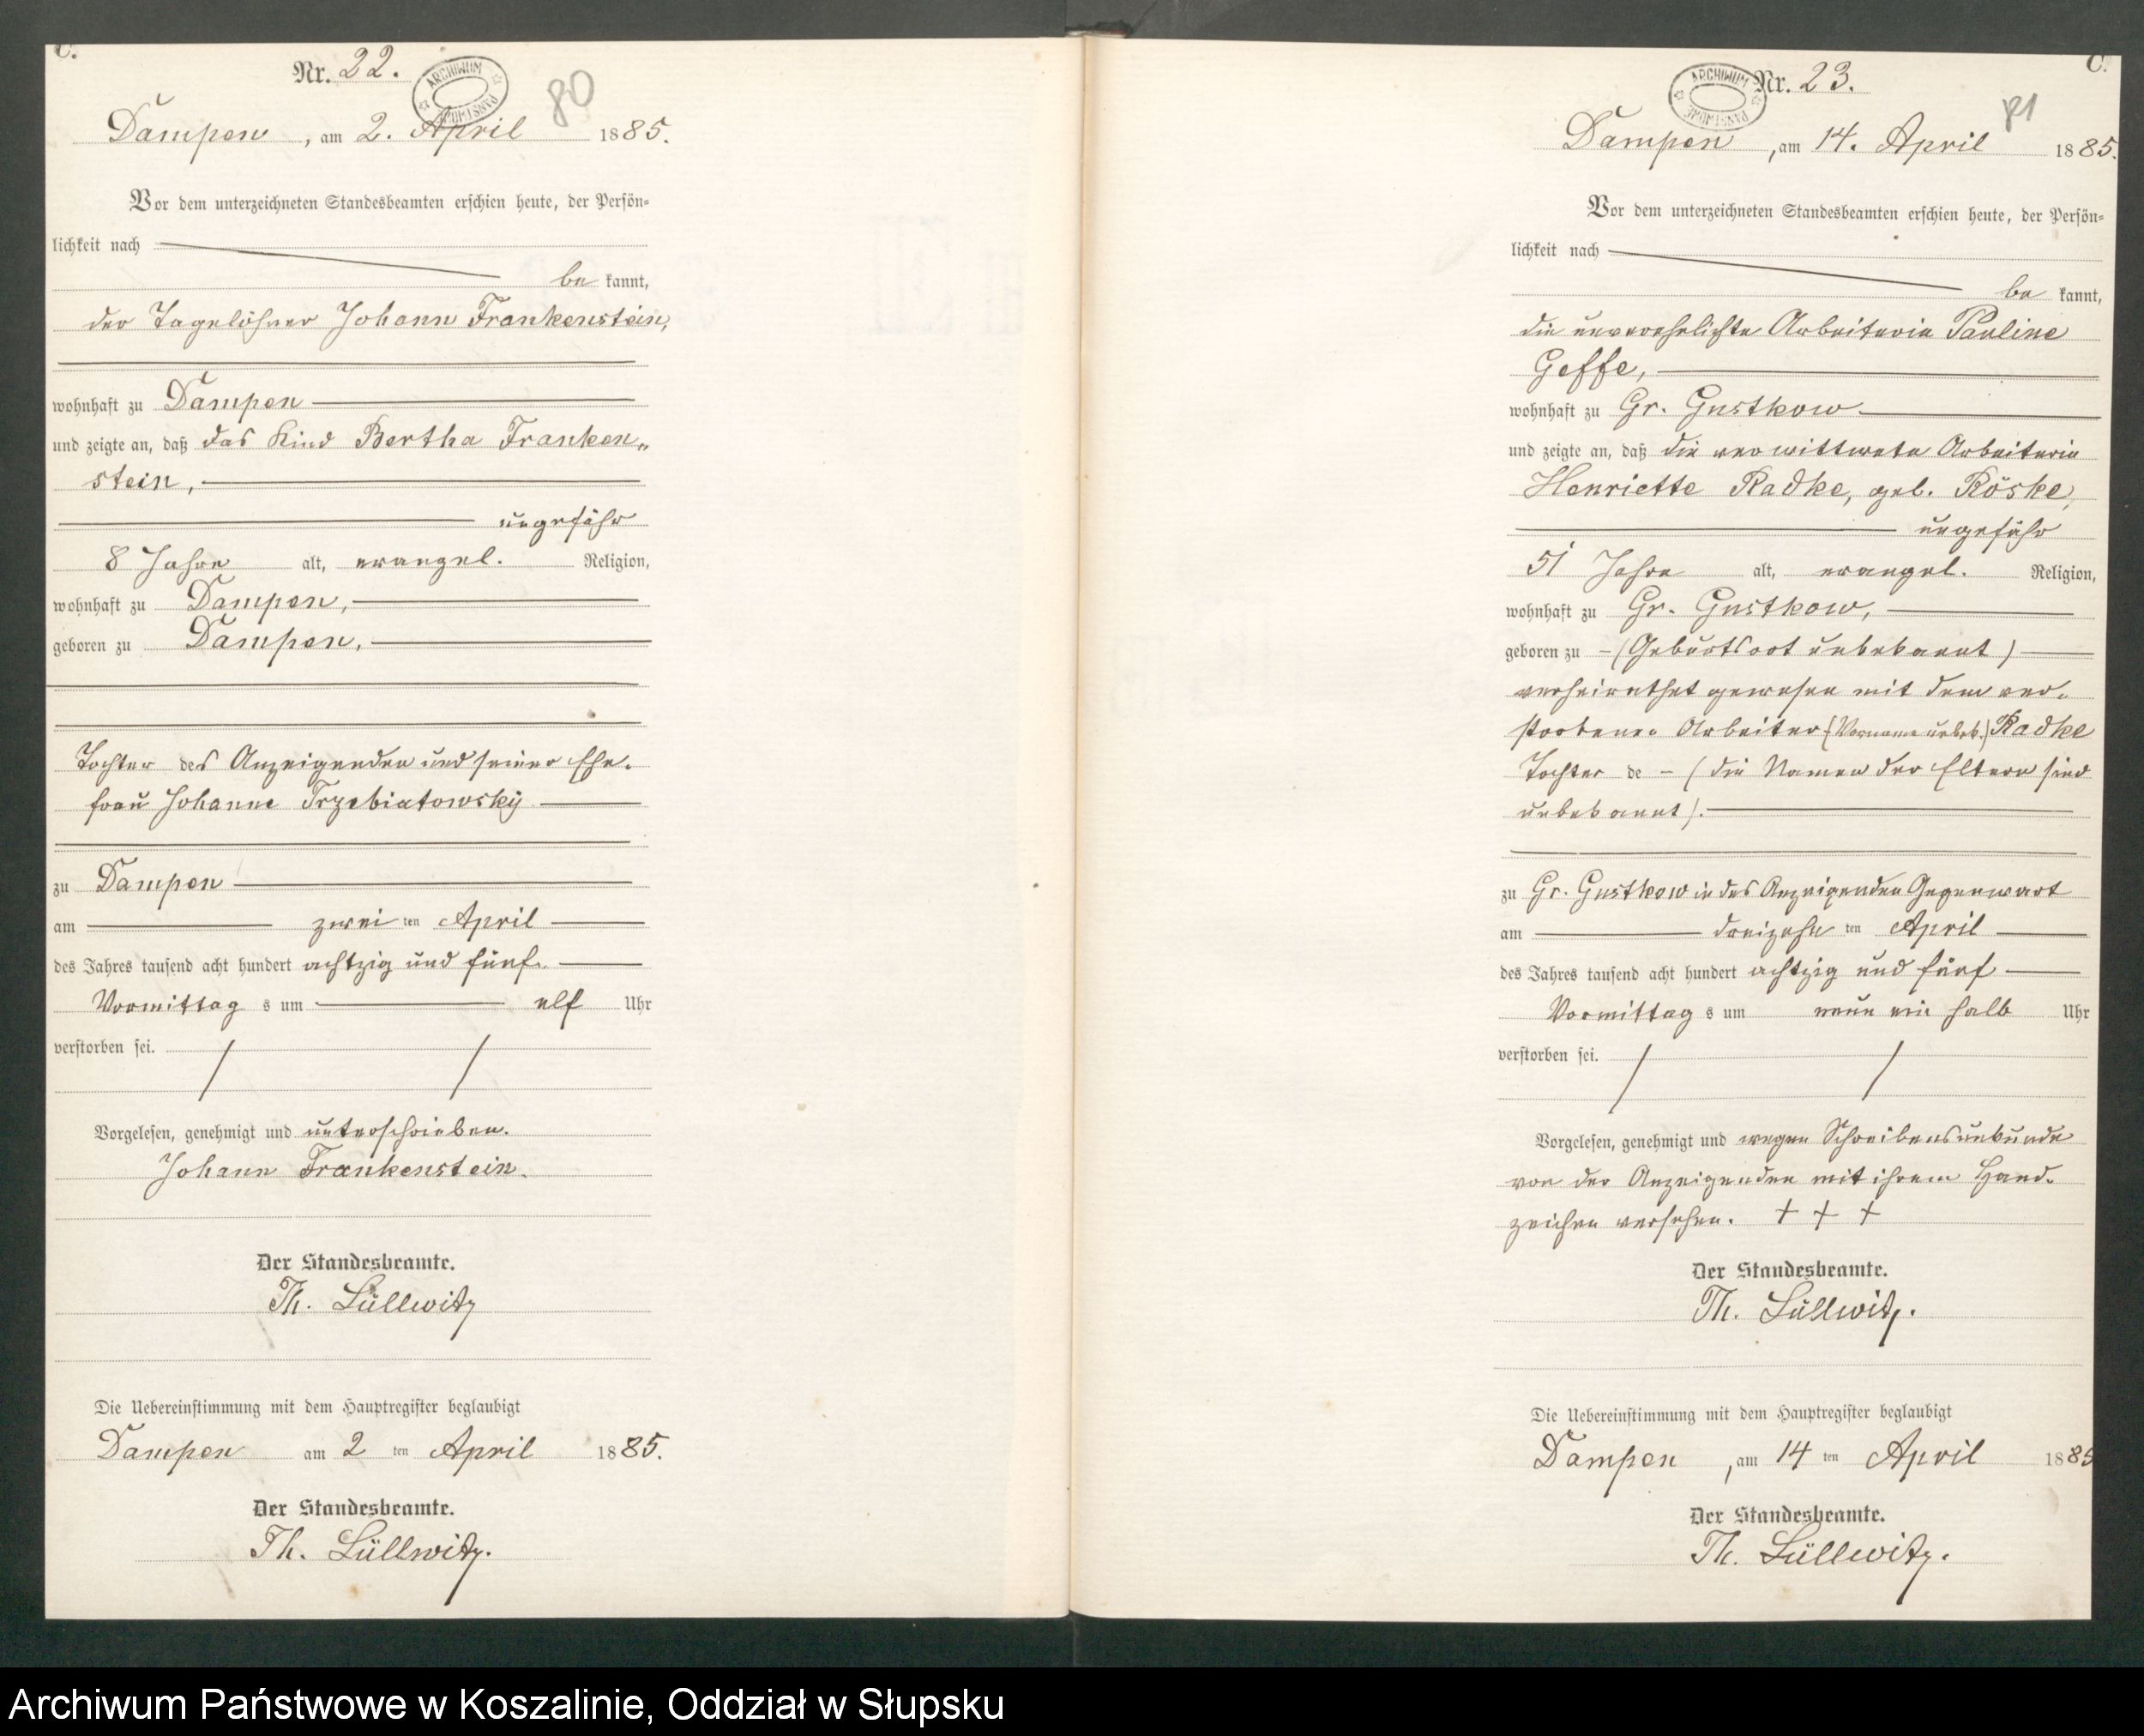 C.
Nr. 22.
ARCHIWUM PAŃSTWOWE
80
Dampen, am 2. April 1885.
Vor dem unterzeichneten Standesbeamten erschien heute, der Persön-
lichkeit nach
be kannt,
der Tagelöhner Johann Frankenstein,
wohnhaft zu Dampen
und zeigte an, daß das Kind Bertha Franken-
stein,
ungefähr
8 Jahre alt, evangel. Religion,
wohnhaft zu Dampen,
geboren zu Dampen,
Tochter des Anzeigenden und seiner Ehe-
frau Johanne Trzebiatowsky
zu Dampen
am zwei ten April
des Jahres tausend acht hundert achtzig und fünf
Vormittag s um elf Uhr
verstorben sei.
Vorgelesen, genehmigt und unterschrieben.
Johann Frankenstein.
Der Standesbeamte.
Th. Lüllwitz
Die Uebereinstimmung mit dem Hauptregister beglaubigt
Dampen am 2 ten April 1885.
Der Standesbeamte.
Th. Lüllwitz.
C.
Nr. 23.
ARCHIWUM PAŃSTWOWE
81
Dampen, am 14. April 1885.
Vor dem unterzeichneten Standesbeamten erschien heute, der Persön-
lichkeit nach
be kannt,
die unverehelichte Arbeiterin Pauline
Geffe,
wohnhaft zu Gr. Gustkow
und zeigte an, daß die verwittwete Arbeiterin
Henriette Radke, geb. Röske,
ungefähr
51 Jahre alt, evangel. Religion,
wohnhaft zu Gr. Gustkow,
geboren zu - (Geburtsort unbekannt)
verheirathet gewesen mit dem ver-
storbenen Arbeiter (Vorname unbek.) Radke
Tochter de - (die Namen der Eltern sind
unbekannt).
zu Gr. Gustkow in des Anzeigenden Gegenwart
am dreizehn ten April
des Jahres tausend acht hundert achtzig und fünf
Vormittag s um neun ein halb Uhr
verstorben sei.
Vorgelesen, genehmigt und wegen Schreibensunkunde
von der Anzeigenden mit ihrem Hand-
zeichen versehen. + + +
Der Standesbeamte.
Th. Lüllwitz.
Die Uebereinstimmung mit dem Hauptregister beglaubigt
Dampen, am 14 ten April 1885
Der Standesbeamte.
Th. Lüllwitz.
Archiwum Państwowe w Koszalinie, Oddział w Słupsku